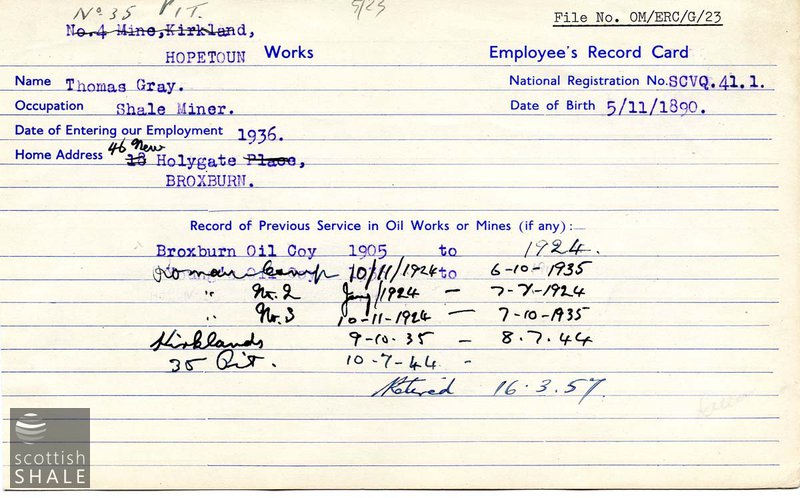 No 35 PIT. 5/23 File No. OM/ERC/G/23
No.4 Mine,Kirkland,
HOPETOUN Works Employee's Record Card
Name Thomas Gray. National Registration No. SCVQ.41.1.
Occupation Shale Miner. Date of Birth 5/11/1890.
Date of Entering our Employment 1936.
46 New
Home Address 18 Holygate Place,
BROXBURN.
Record of Previous Service in Oil Works or Mines (if any):—
Broxburn Oil Coy 1905 to 1924.
Roman Camp 10/11/1924 to 6-10-1935
" No. 2 Jany/1924 — 7-8-1924
" No. 3 10-11-1924 — 7-10-1935
Kirklands 9-10-35 — 8.7.44
35 Pit. 10-7-44 -
Retired 16.3.57.
scottish
SHALE